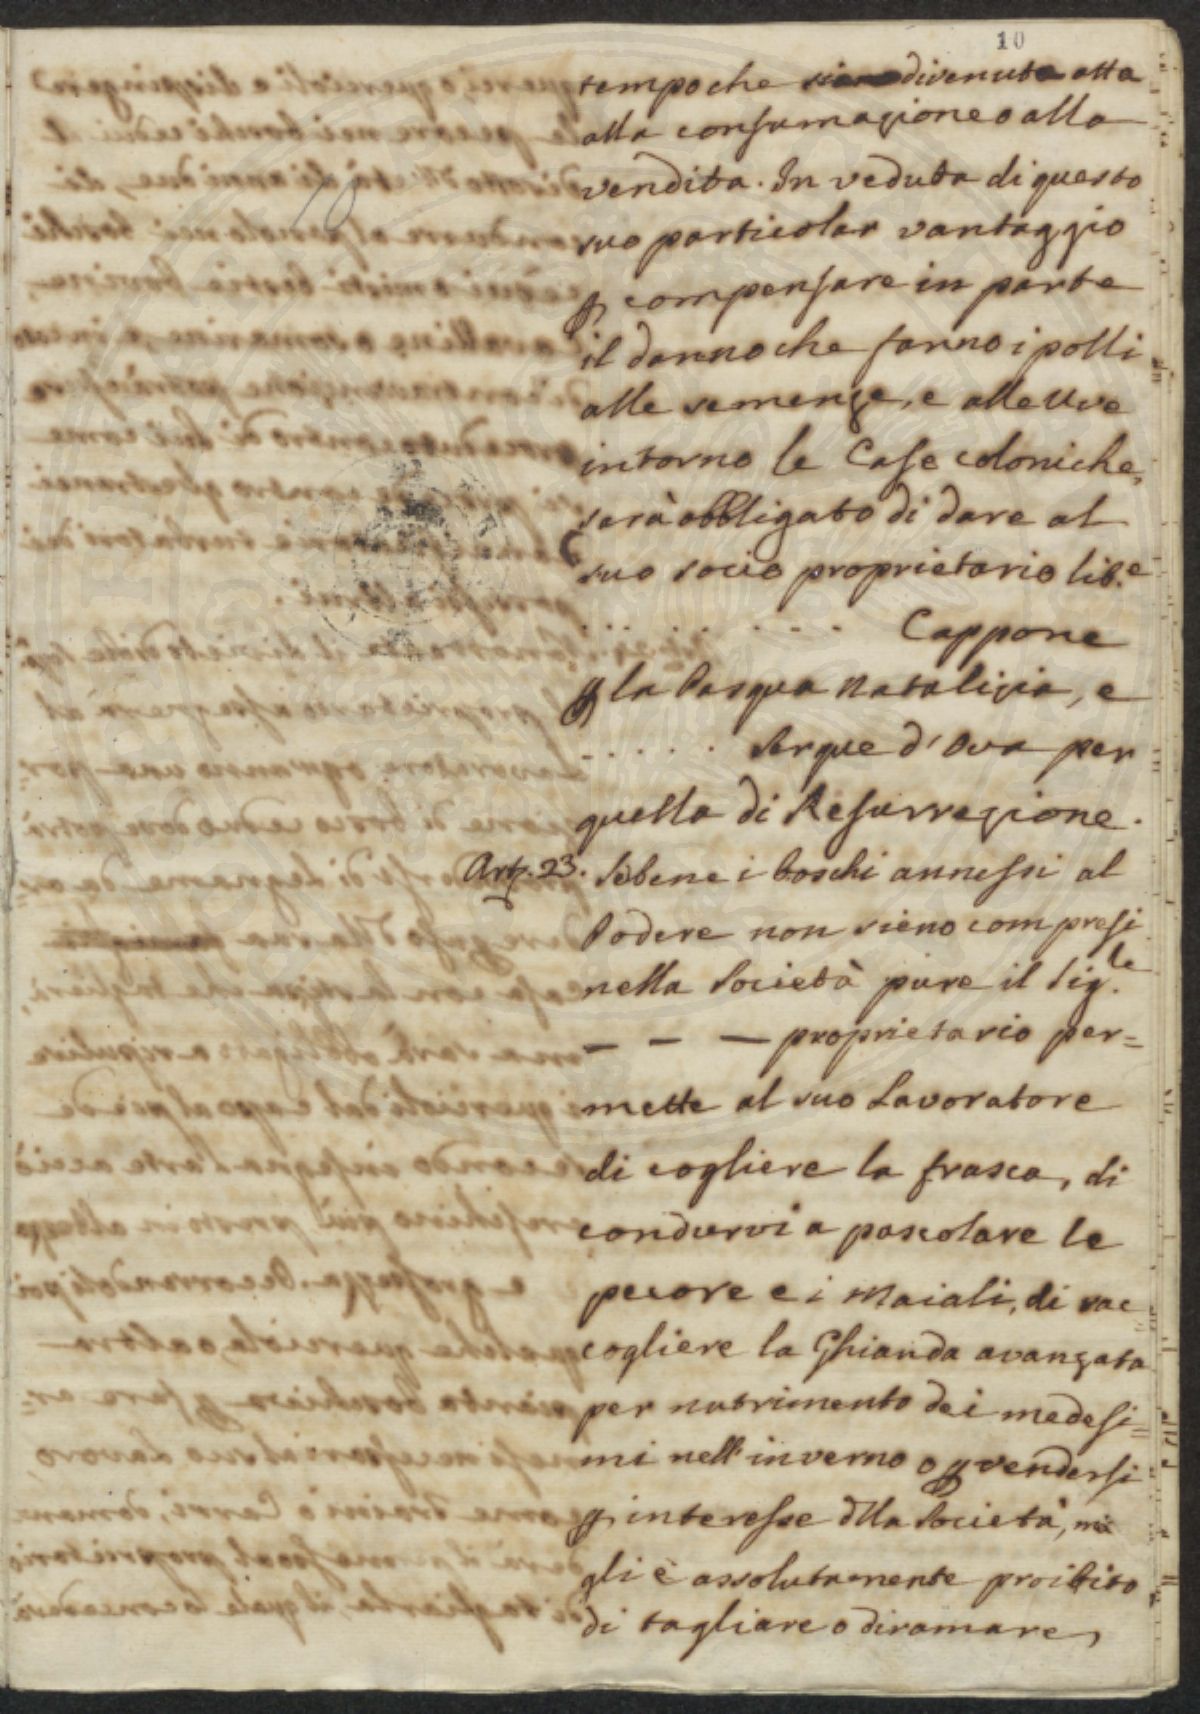 10
tempo che siano divenute atte
alla consumazione o alla
vendita. In veduta di questo
suo particolar vantaggio
p compensare in parte
il danno che fanno i polli
alle semenze, e alle Uve
intorno le Case coloniche,
sarà obbligato di dare al
suo socio proprietario lib.e
. . . . . . . . . Cappone
p la Pasqua Natalizia, e
. . . . . Serque d'Ova per
quella di Resurrezione.
Art. 23. Sebene i boschi annessi al
Podere non sieno compresi
nella Società pure il Sig.le
— — — proprietario per=
mette al suo Lavoratore
di cogliere la frasca, di
condurvi a pascolare le
pecore e i Maiali, di rac
cogliere la Ghianda avanzata
per nutrimento dei medesi=
mi nell'inverno o p vendersi
p interesse dlla Società, ma
gli è assolutamente proibito
di tagliare o diramare,